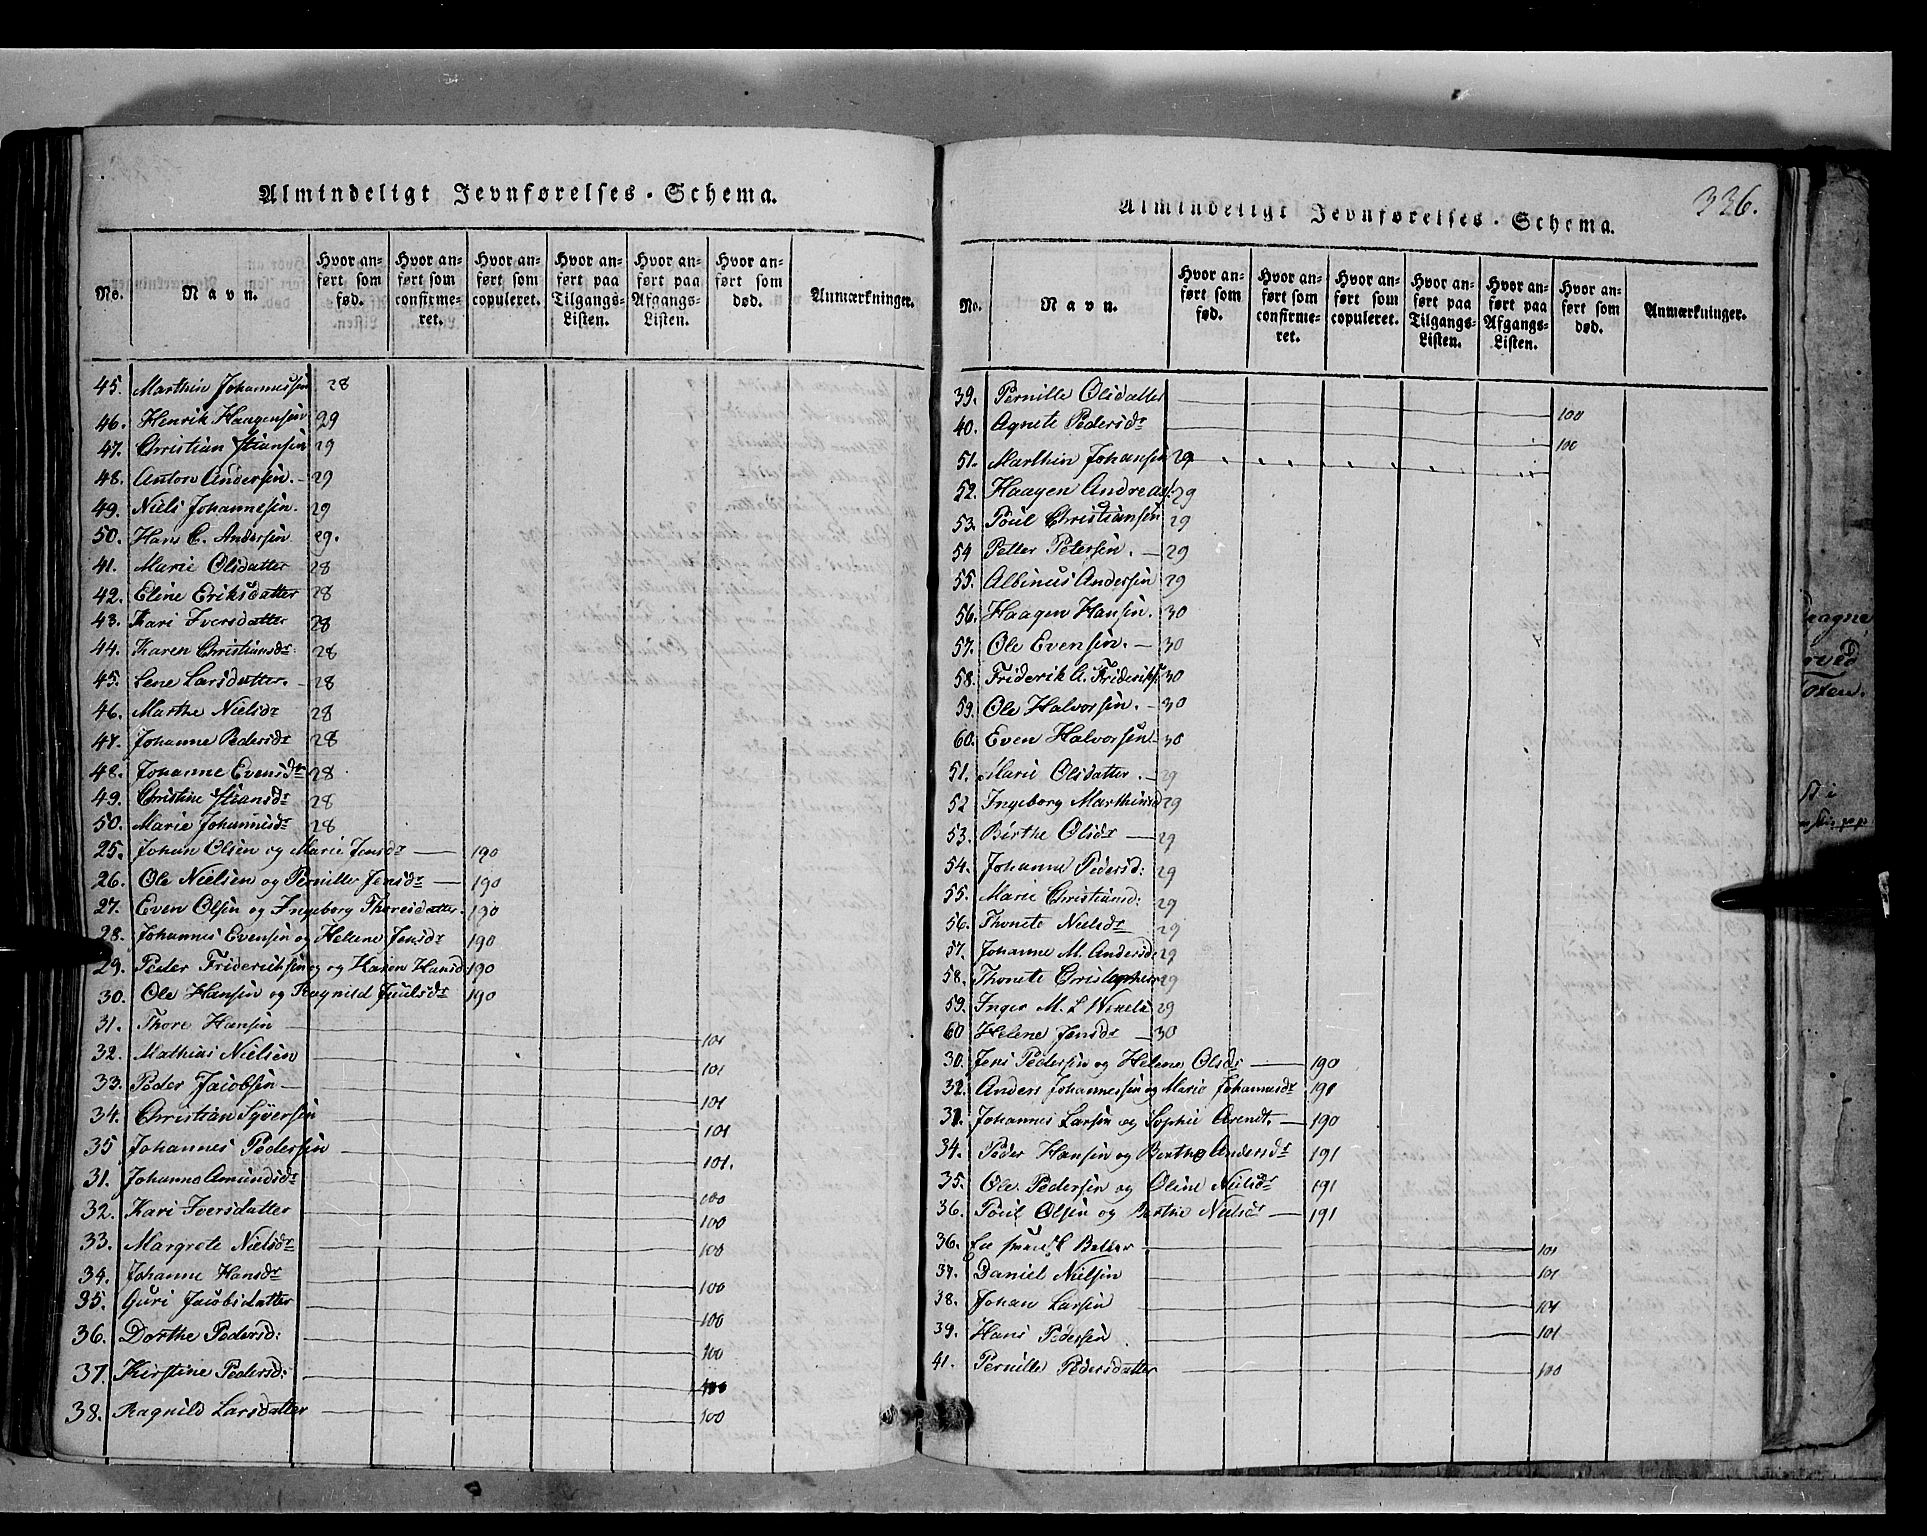 Almindeligt Jevnførelses-Schema.
No. Navn. Hvor anført som fød. Hvor anført som confirmeret. Hvor anført som copuleret. Hvor anført paa Tilgangs-Listen. Hvor anført paa Afgangs-Listen. Hvor anført som død. Anmærkninger.
45. Marthin Johannessen 28
46. Henrik Haagensen 29
47. Christian Hansen 29
48. Anton Andersen. 29
49. Niels Johannesen. 29
50. Hans C. Andersen 29.
41. Marie Olsdatter 28
42. Eline Eriksdatter 28
43. Kari Iversdatter 28
44. Karen Christiansdr 28
45. Lene Larsdatter. 28
46. Marthe Nielsdr 28
47. Johanne Pedersdr 28
48. Johanne Evensdr 28
49. Christine Hansdr 28
50. Marie Johannisdr 28
25. Johan Olsen og Marie Jensdr — 190
26. Ole Nielsen og Pernille Jensdr — 190
27. Even Olsen og Ingeborg Thoresdatter. 190
28. Johannes Evensen og Helene Jensdr 190
29. Peder Friderichsen og Karen Hansd. 190
30. Ole Hansen og Ragnild Juulsdr 190
31. Thore Hansen 101
32. Mathias Nielsen 101
33. Peder Jacobsen 101
34. Christian Syversen 101
35 Johannes Pedersen 101.
31. Johanne Amundsdr 100
32. Kari Iversdatter 100
33. Margrete Nielsdr 100
34. Johanne Hansdr 100
35. Guri Jacobsdatter 100
36. Dorthe Pedersd: 100
37. Kirstine Pedersd: 100
38. Ragnild Larsdatter 100
336.
Almindeligt Jevnførelses-Schema.
No. Navn. Hvor anført som fød. Hvor anført som confirmeret. Hvor anført som copuleret. Hvor anført paa Tilgangs-Listen. Hvor anført paa Afgangs-Listen. Hvor anført som død. Anmærkninger.
39. Pernille Olsdatter 100
40. Agnete Pedersdr 100
51. Marthin Johansen 29
52. Haagen Andreas: 29
53. Poul Christiansen 29
54 Petter Petersen. — 29
55. Albinus Andersen 29
56. Haagen Hansen. 30
57. Ole Evensen. — 30
58. Friderik A. Frideriks: 30
59. Ole Halvorsen. — 30
60. Even Halvorsen 30
51. Marie Olsdatter. — 29
52 Ingeborg Marthinsd 29
53. Birthe Olsdr — 29
54. Johanne Pedersd: 29
55. Marie Christiansd: 29
56. Thonete Nielsdr 29
57. Johanne M. Andersd. 29
58. Thonete 29
59. Inger M. L 29
60 Helene Jensdr — 30
30. Jens Pedersen og Helene Olsdr — 190
32. Anders Johannessen og Marie Johannesdr 191
31. Johannes Larsen og Sophie Arendt. — 190
34. Peder Hansen og Berthe Andersdr 191
35. Ole Pedersen og Oline Nielsdr 191
36. Poul Olsen og Berthe Nielsdr — 191
36. 101
37. Daniel Nielsen 101
38. Johan Larsen 101
39. Hans Pedersen 101
41. Pernille Pedersdatter 100